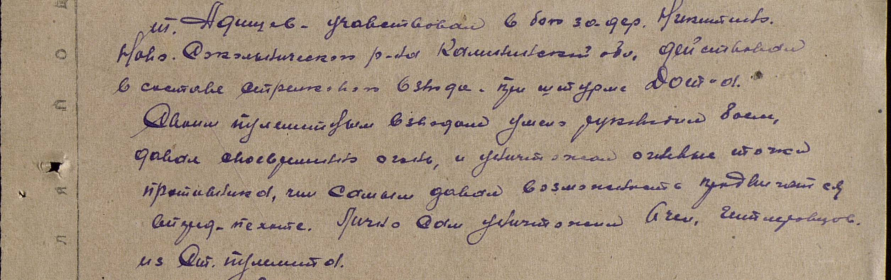 т. Адищев - учавствовал в бою за дер. Никитино.
Ново-Сокольнического р-на Калининской обл, действовал
в составе стрелкового взвода - при штурме Дот-а.
Своим пулеметным взводом умело руководил боем,
давал своевременно огонь, и уничтожал огневые точки
противника, чем самым давал возможность продвигатся
вперед - пехоте. Лично сам уничтожил 6 чел, гитлеровцев.
из Ст. пулемета.